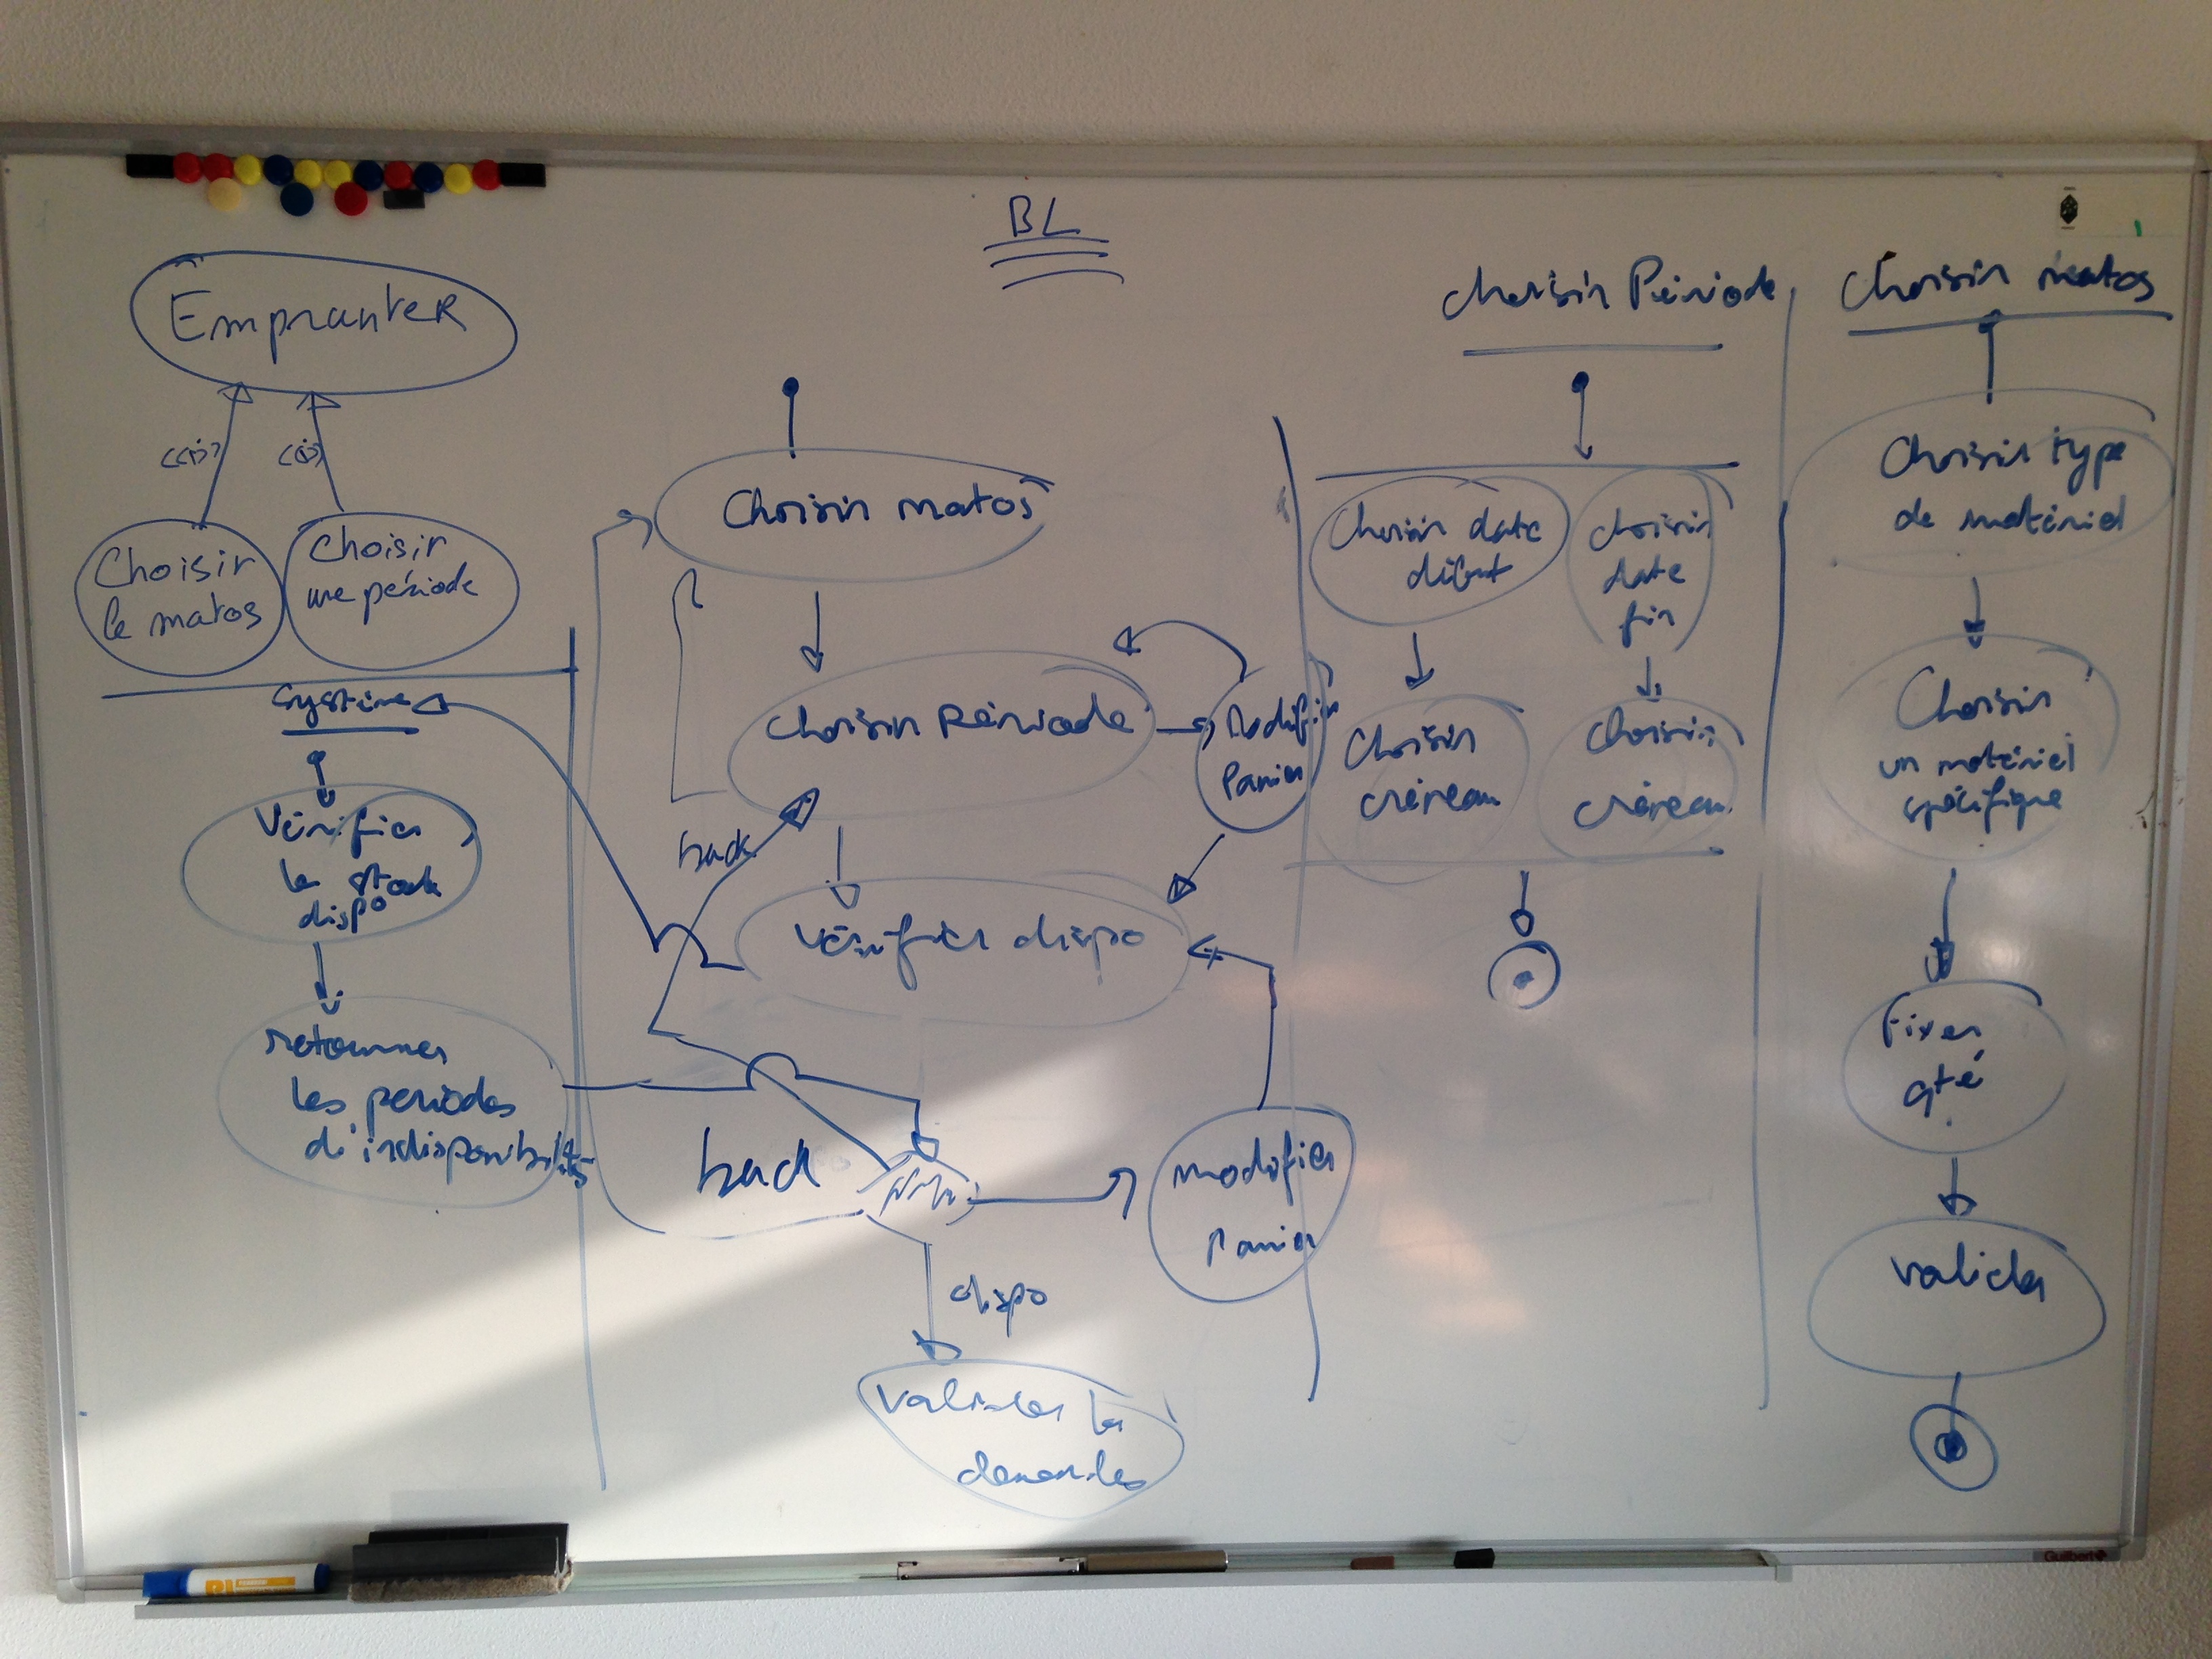 BL
Emprunter
<<i>>
<<i>>
Choisir
le matos
Choisir
une période
système
Vérifier
le stock
dispo
retourner
les périodes
d'indisponibilités
Choisir matos
Choisir Période
Modifier
Panier
back
Vérifier dispo
back
modifier
Panier
dispo
Valider la
demandes
Choisir Période
Choisir date
début
Choisir
date
fin
Choisir
créneau
Choisir
créneau
Choisir matos
Choisir type
de matériel
Choisir
un matériel
spécifique
Fixer
qté
Valider
Guilbert